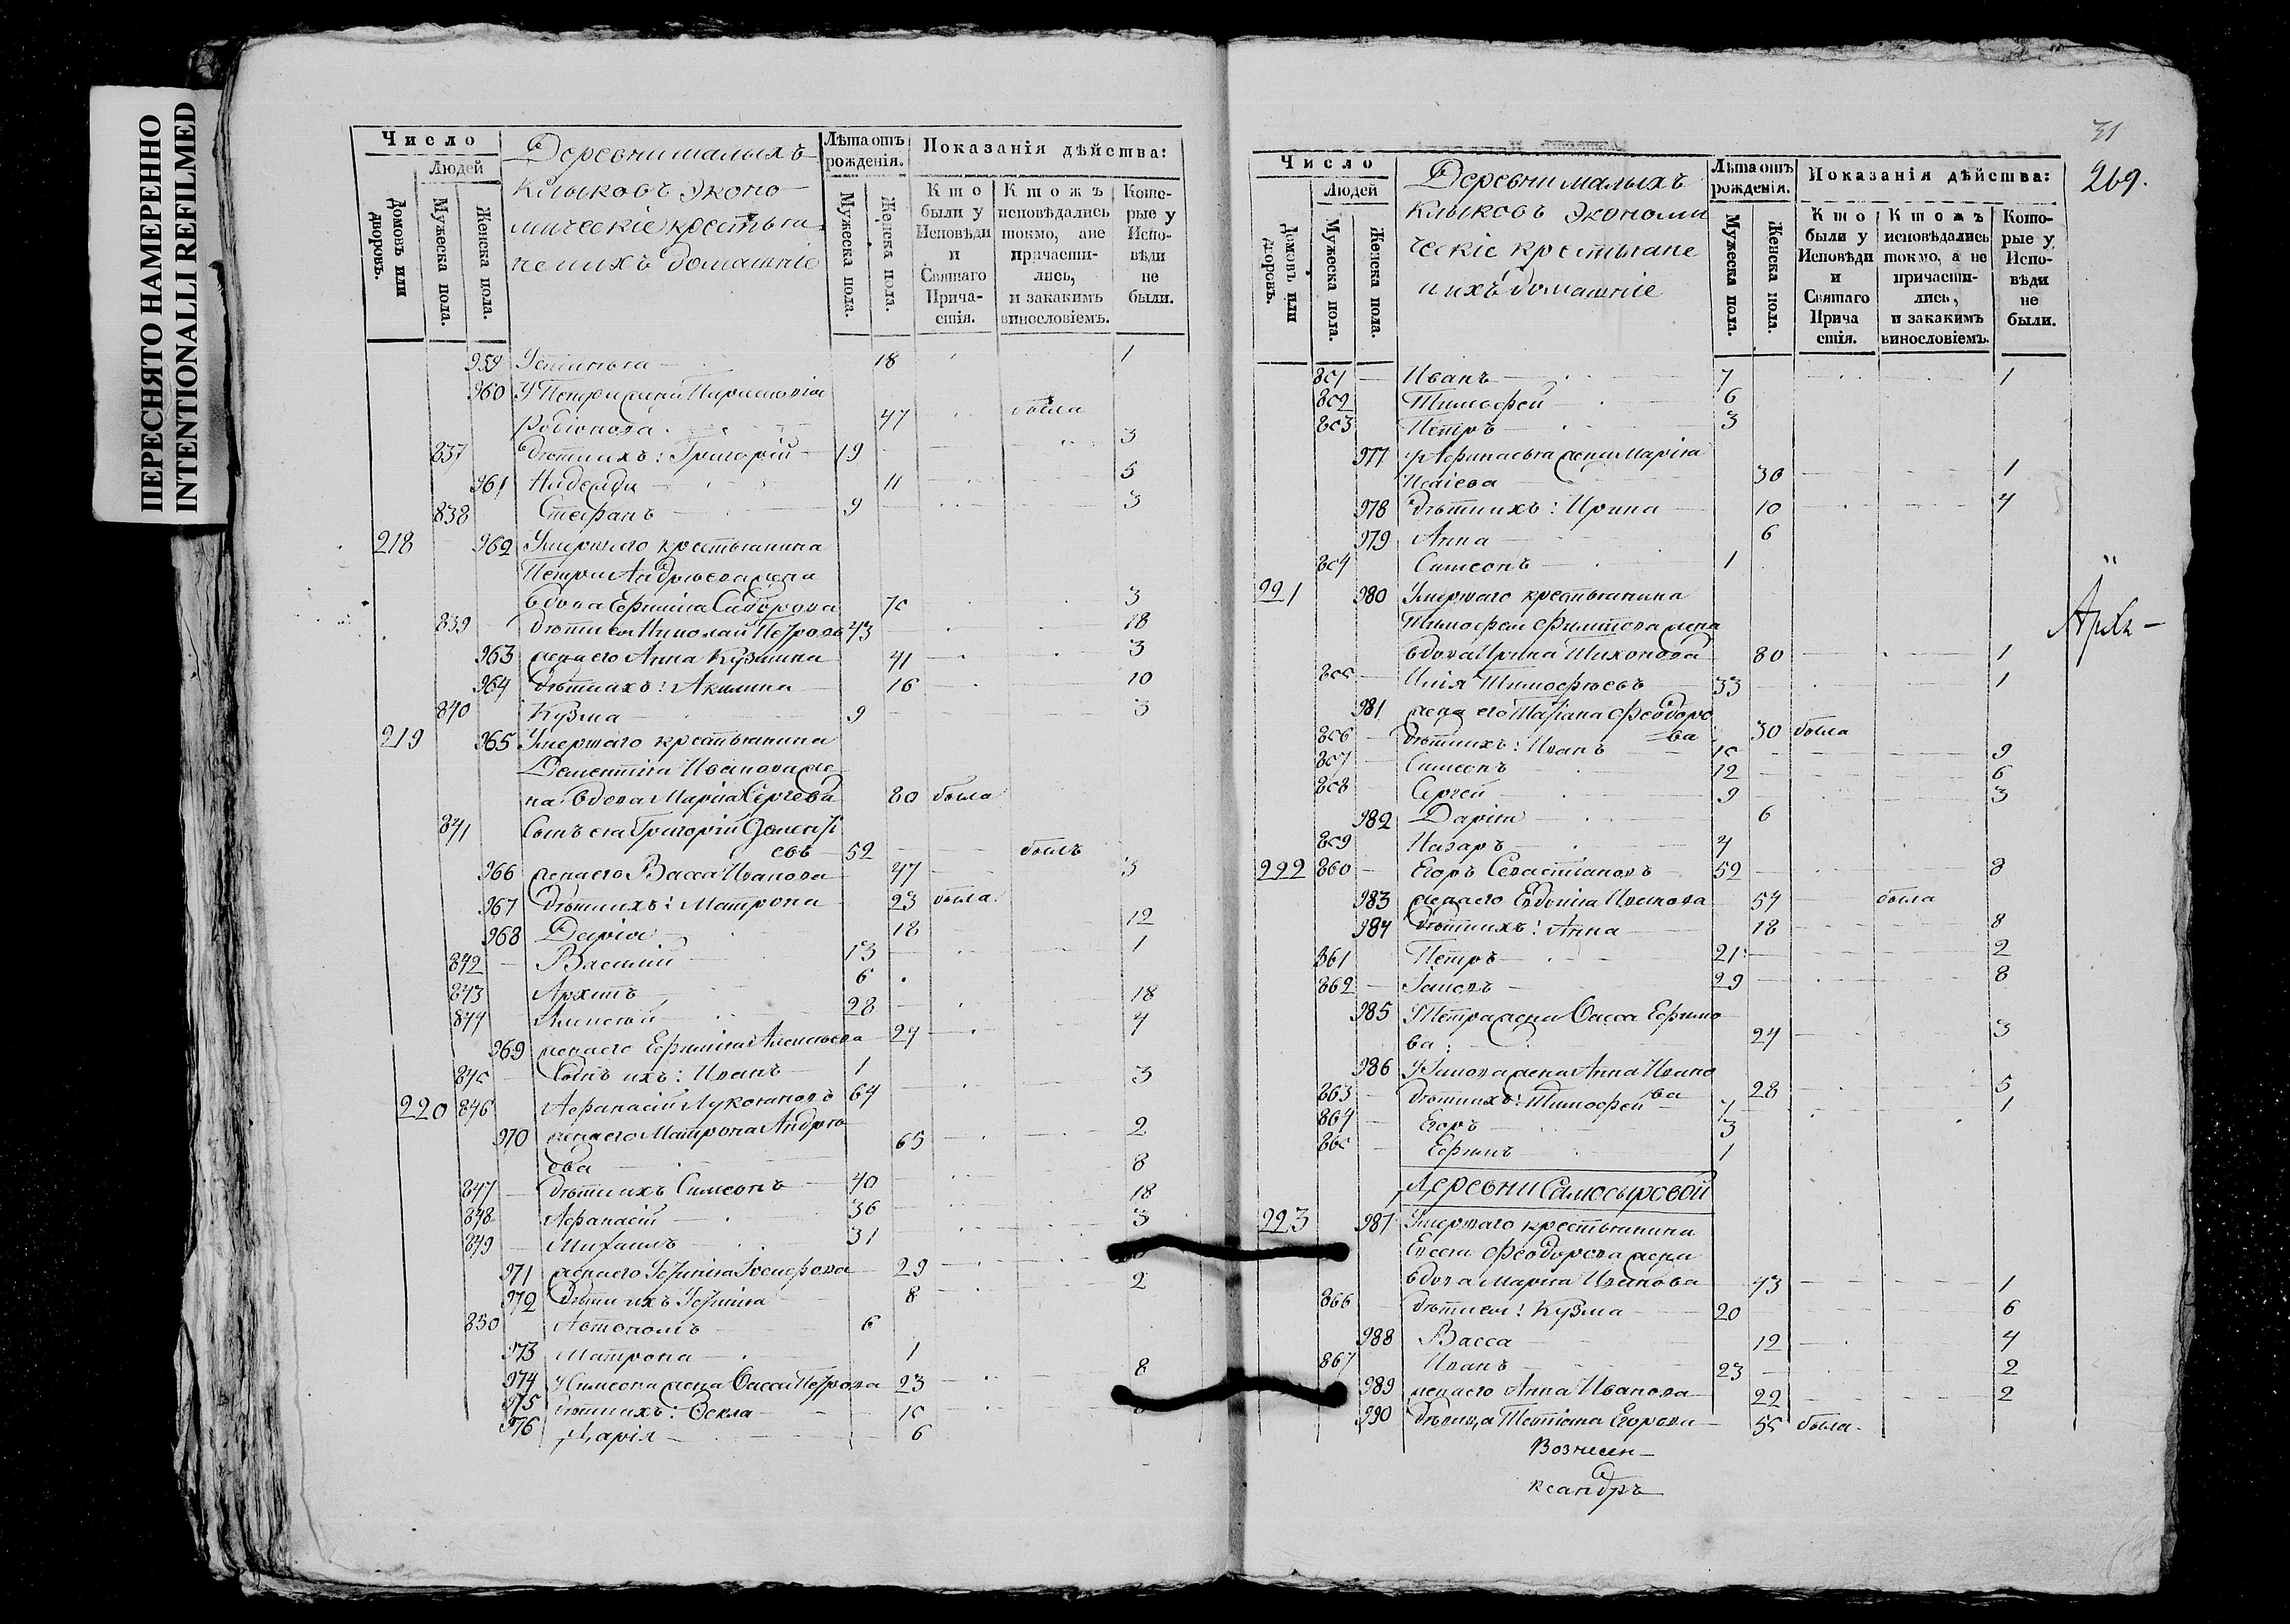 ПЕРЕСНЯТО НАМЕРЕННО
INTENTIONALLI REFILMED
Число
Людей
Домовъ или дворовъ.
Мужеска пола.
Женска пола.
Деревни малыхъ
Клыковъ эконо
мическiе крестья
не и ихъ домашнiе
Лѣта отъ рожденiя.
Мужеска пола.
Женска пола.
Показанiя дѣйства:
Кто были у Исповѣди и Святаго Причастiя.
Ктожъ исповѣдались токмо, а не причастились, и закакимъ винословiемъ.
Которые у Исповѣди не были.
959 Устинья 18 1
960 У Петра жена
Родiонова 47 была
837 дѣти ихъ: Григорiй 19 3
961 Надежда 11 5
838 Стефанъ 9 3
218 962 Умершаго крестьянина
Петра Андреева жена
вдова Ефимiа Сидорова 70 3
839 дѣти ея Николай Петровъ 43 18
963 жена его Анна Кузмина 41 3
964 дѣти ихъ: Акилина 16 10
840 Кузма 9 3
219 965 Умершаго крестьянина
Дементiя Иванова же
на вдова Марiа Сергѣева 80 была
841 Сынъ еа Григорiй Дементь
евъ 52 былъ
966 жена его Васса Иванова 47 3
967 дѣти ихъ: Матрона 23 была
968 Дарiа 18 12
842 Василiй 13 1
843 Архипъ 6
844 Алексѣй 28 18
969 жена его Ефимiа Алексѣева 24 4
845 Сынъ ихъ: Иванъ 1
220 846 Афанасiй Лукояновъ 64 3
970 жена его Матрона Андрѣе
ва 65 2
847 дѣти ихъ Симеонъ 40 8
848 Афанасiй 36 18
849 Михаилъ 31 3
971 жена его Iосифова 29
972 дѣти ихъ 8 2
850 Автономъ 6
973 Матрона 1
974 У Симеона жена Васса Петрова 23 8
975 дѣти ихъ: Фекла 10
976 Дарiя 6
31
269.
Число
Людей
Домовъ или дворовъ.
Мужеска пола.
Женска пола.
Деревни малыхъ
Клыковъ экономи
ческiе крестьяне
и ихъ домашнiе
Лѣта отъ рожденiя.
Мужеска пола.
Женска пола.
Показанiя дѣйства:
Кто были у Исповѣди и Святаго Причастiя.
Ктожъ исповѣдались токмо, а не причастились, и закакимъ винословiемъ.
Которые у Исповѣди не были.
851 Иванъ 7 1
852 Тимофей 6
853 Петръ 3
977 У Афанасья жена Марiа
Исаiева 30 1
978 дѣти ихъ: Ирина 10 4
979 Анна 6
854 Симеонъ 1
221 980 Умершаго крестьянина
Тимофея Филипова жена
вдова Ирина Тихонова 80 1
855 Илiя Тимофѣевъ 33 1
981 жена его Татiана Феодоро
ва 30 была
856 дѣти ихъ: Иванъ 15 9
857 Симеонъ 12 6
858 Сергей 9 3
982 Дарiя 6
859 Назаръ 4
222 860 Егоръ Севастiановъ 52 8
983 жена его Евдокiа Иванова 54 была
984 дѣти ихъ: Анна 18 8
861 Петръ 21 2
862 Iаковъ 29 8
985 У Петра жена Васса Ефимо
ва 24 3
986 У Iакова жена Анна Ивано
ва 28 5
863 дѣти ихъ: Тимофей 7 1
864 Егоръ 3
865 Ефимъ 1
Деревни Самосыровой
223 987 Умершаго крестьянина
Евсея Феодорова жена
вдова Марiа Иванова 43 1
866 дѣти ея: Кузма 20 6
988 Васса 12 4
867 Иванъ 23 2
989 жена его Анна Иванова 22 2
990 дѣвица Егорова 55 была
Архи-
Вознесен-
ксандръ